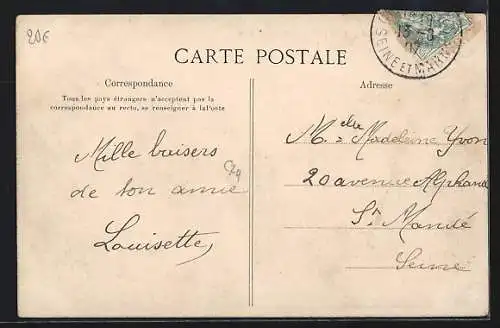 20€
CARTE POSTALE
13 -8
07
SEINE ET MARNE
Correspondance
Tous les pays étrangers n'acceptent pas la
correspondance au recto, se renseigner à la Poste
Mille baisers
de ton amie
Louisette
Adresse
Melle Madeleine Yvon
20 avenue Alphand
St Mandé
Seine